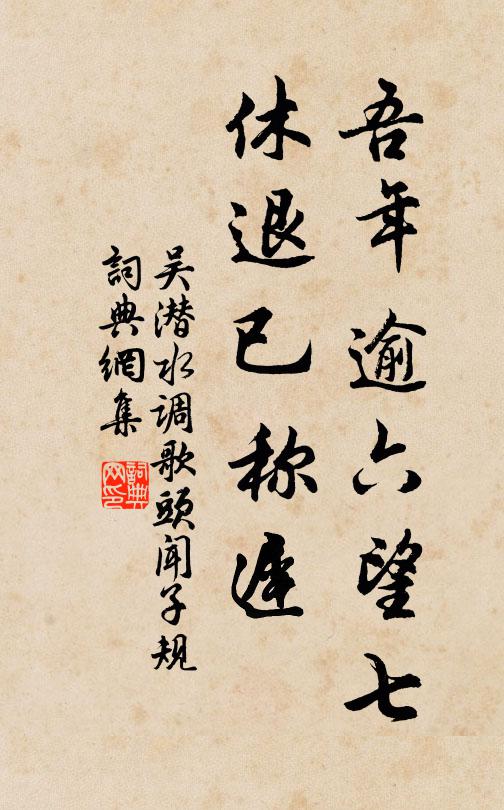 吾年逾六望七
休退已称迟
吴潜水调歌头闻子规
詞典網集
詞典
网印